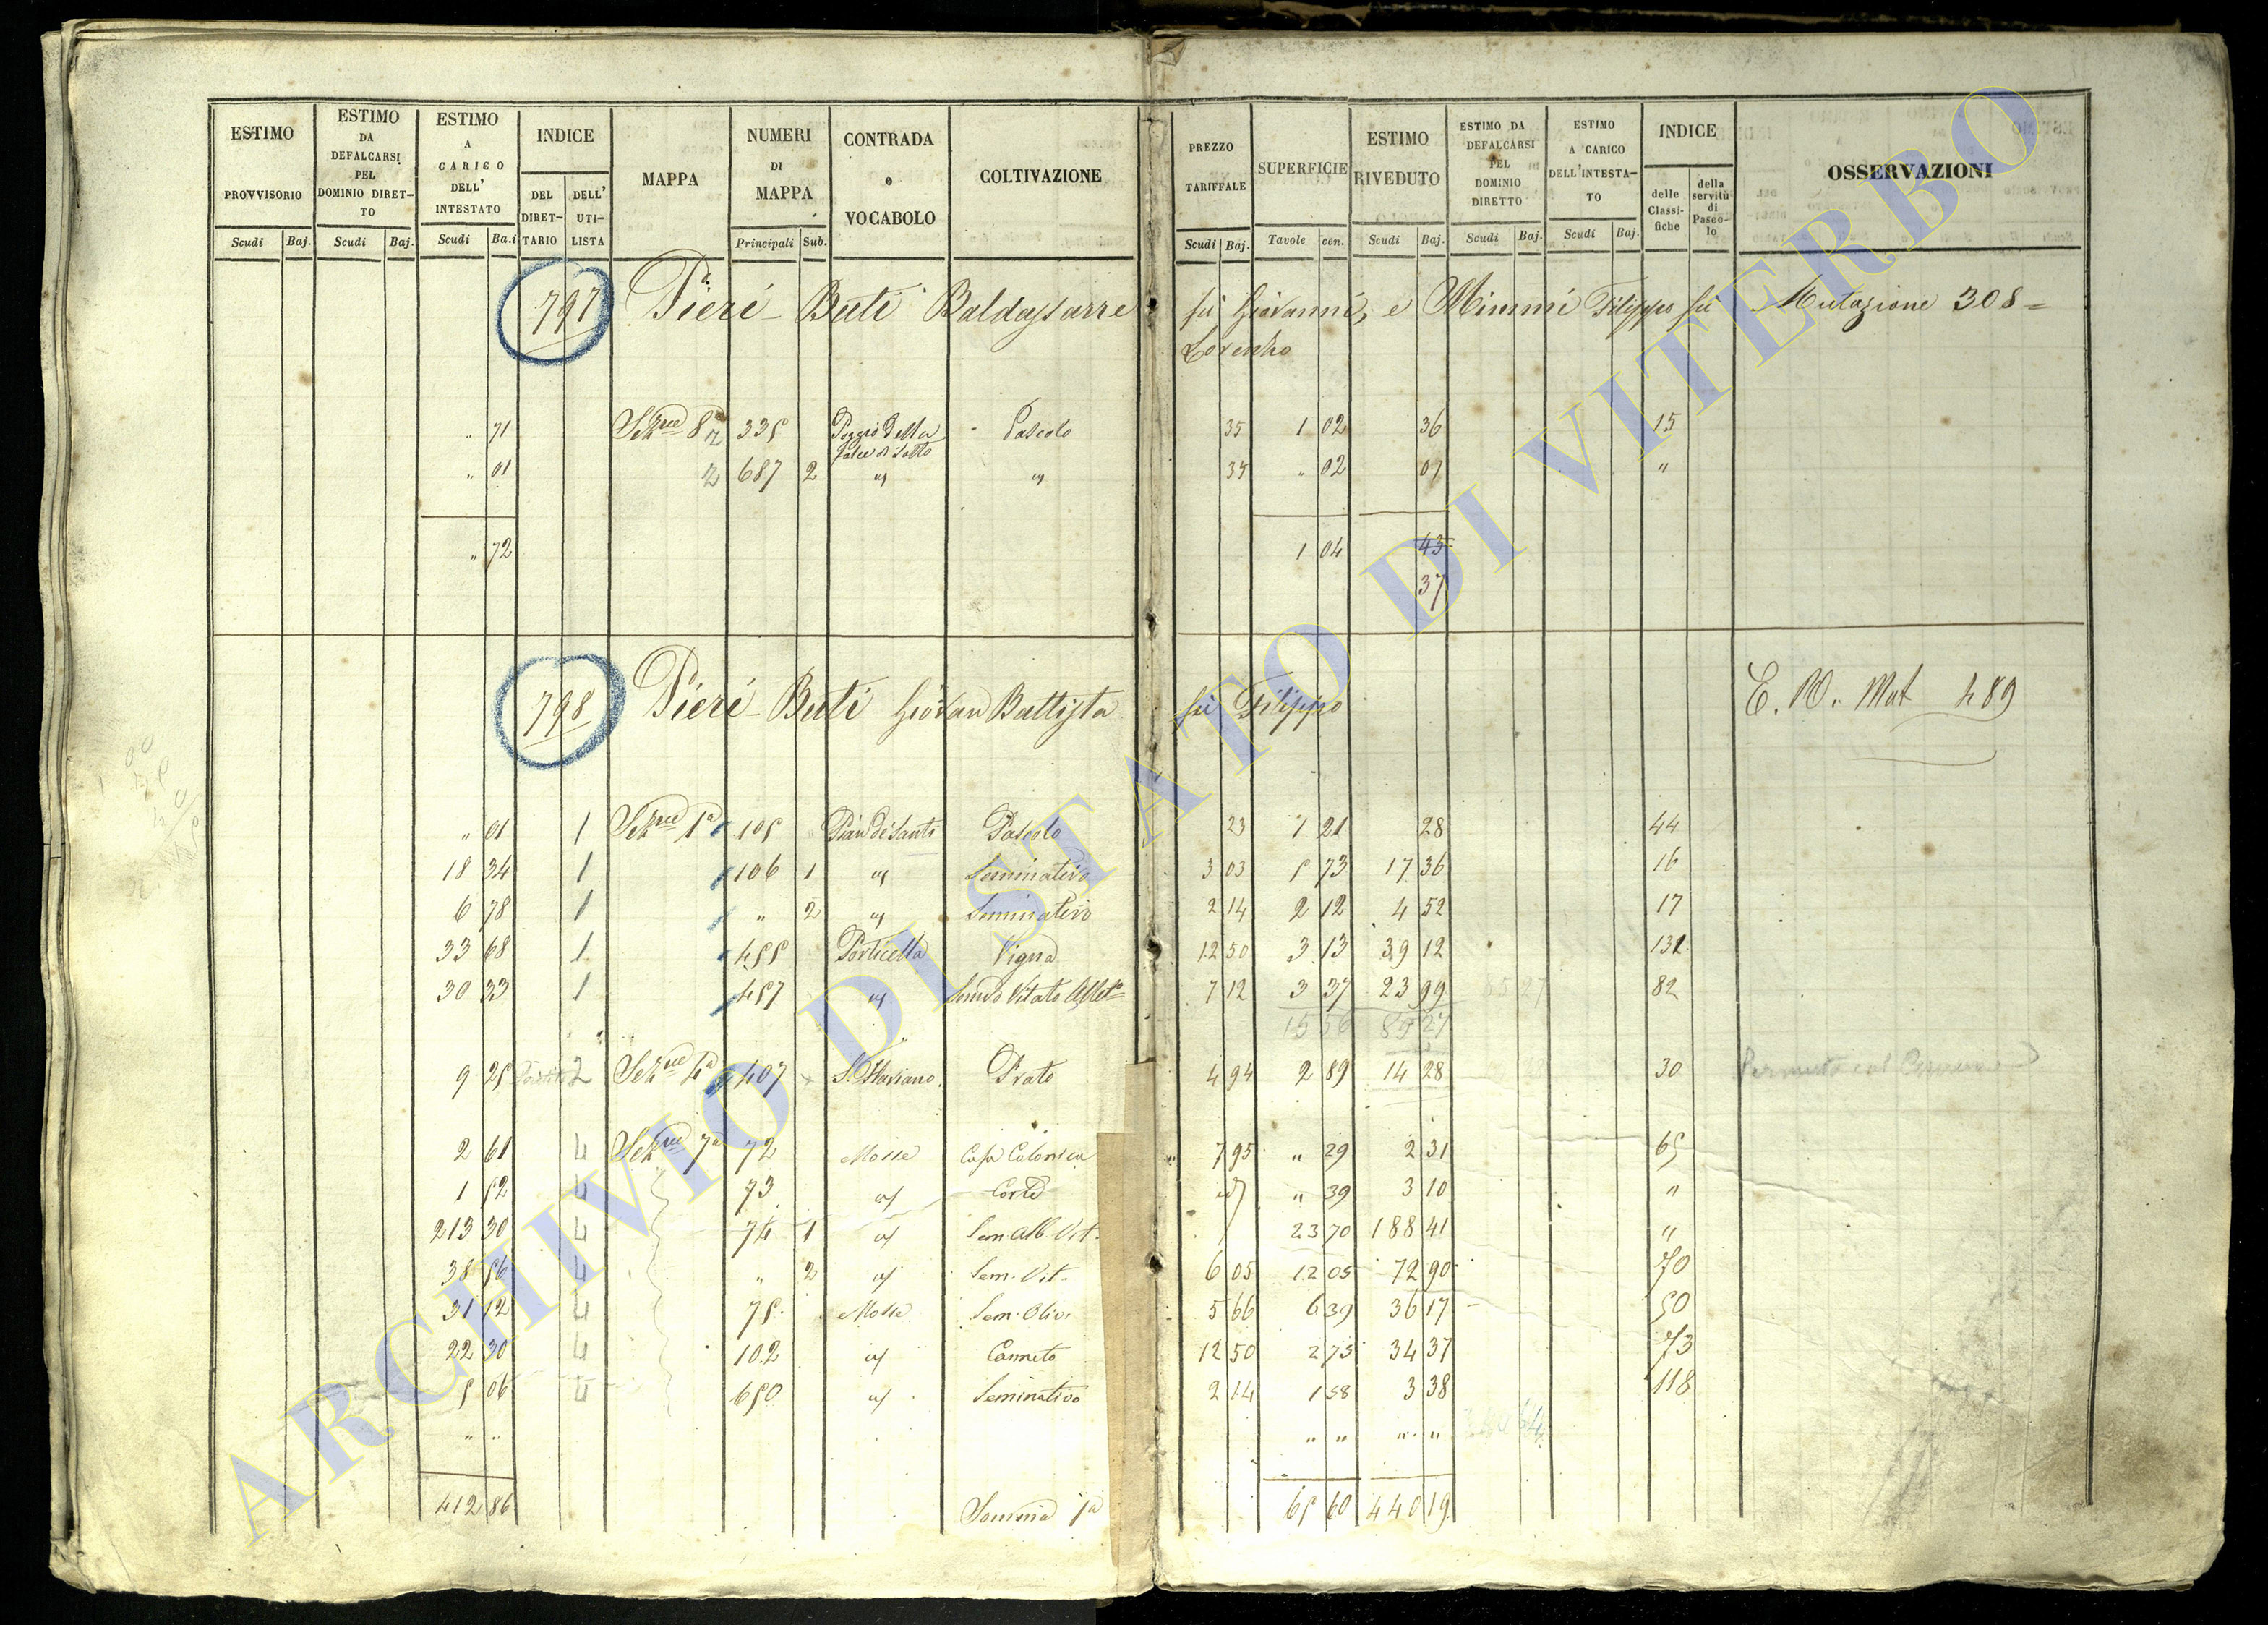 ESTIMO PROVVISORIO Scudi Baj.
ESTIMO DA DEFALCARSI PEL DOMINIO DIRETTO Scudi Baj.
ESTIMO A CARICO DELL' INTESTATO Scudi Ba.i
INDICE DEL DIRETTARIO DELL' UTILISTA
MAPPA
NUMERI DI MAPPA Principali Sub.
CONTRADA o VOCABOLO
COLTIVAZIONE
PREZZO TARIFFALE Scudi Baj.
SUPERFICIE Tavole cen.
ESTIMO RIVEDUTO Scudi Baj.
ESTIMO DA DEFALCARSI PEL DOMINIO DIRETTO Scudi Baj.
ESTIMO A CARICO DELL'INTESTATO Scudi Baj.
INDICE delle Classifiche della servitù di Pascolo
OSSERVAZIONI
797 Pieri Buti Baldassarre fù Giovanni, e Mimmi Filippo fù Mutazione 308
Lorenzo
" 71 Sezne 8a 335 Poggio della Pascolo 35 1 02 36 15
" 01 687 2 " " 35 " 02 07 "
" 72 1 04 43
37
798 Pieri Buti Giovan Battista fù Filippo E. W. Mut 489
" 01 1 Sezne 1a 105 Pian de Santi Pascolo 23 1 21 28 44
18 34 1 106 1 " Seminativo 3 03 5 73 17 36 16
6 78 1 " 2 " Seminativo 2 14 2 12 4 52 17
33 68 1 455 Porticella Vigna 12 50 3 13 39 12 131
30 33 1 457 " Semvo Vitato 7 12 3 37 23 99 82
15 56 85 27
9 25 2 Sezne 4a 407 S. Flaviano Prato 4 94 2 89 14 28 30
2 61 4 Sezne 7a 72 Mosse Casa Colonica 7 95 " 29 2 31 65
1 52 4 73 " Corte id " 39 3 10 "
213 30 4 74 1 " Sem. Alb. Vit. 23 70 188 41 "
38 56 4 " 2 " Sem. Vit. 6 05 12 05 72 90 70
31 12 4 75 Mosse Sem. Oliv. 5 66 6 39 36 17 50
22 30 4 102 " Canneto 12 50 2 75 34 37 73
5 06 4 650 " Seminativo 2 14 1 58 3 38 118
" " " " " "
412 86 Somma 1a 65 60 440 19
ARCHIVIO DI STATO DI VITERBO